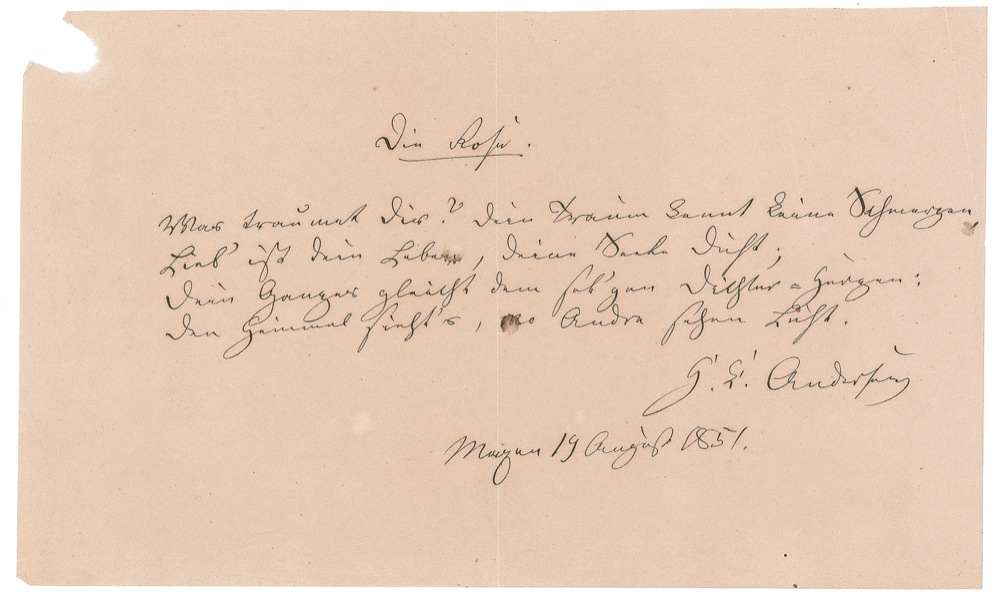 Die Rose.
Was träumet Dir? Dein Traum kennt keine Schmerzen,
Lieb' ist dein Leben, deine Seele Duft;
Dein Ganzes gleicht dem sel'gen Dichter-Herzen:
Den Himmel sieht's, wo Andre sehen Luft.
H. C. Andersen
Maxen 19 August 1851.